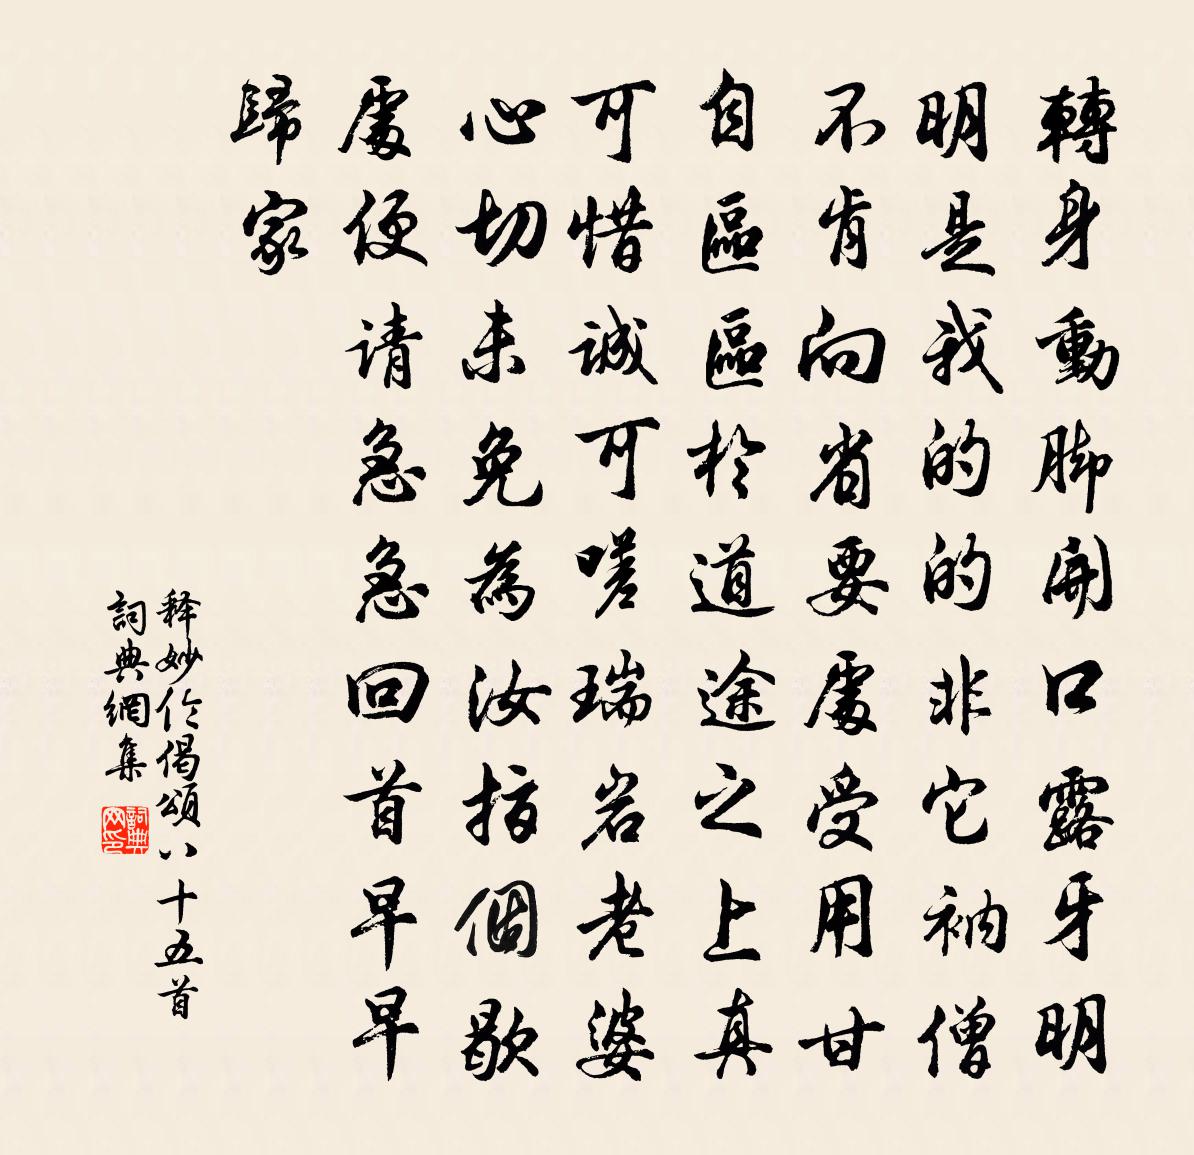 轉身動脚開口露牙明
明是我的的非它衲僧
不肯向省要處受用甘
自區區於道途之上真
可惜誠可嗟瑞岩老婆
心切未免為汝指個歇
處便请急急回首早早
歸家
释妙伦偈頌八十五首
詞典網集
詞典网印